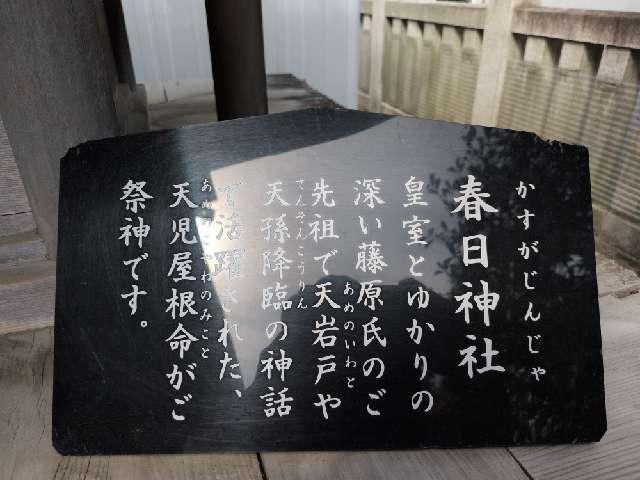 かすがじんじゃ
春日神社
皇室とゆかりの
深い藤原氏のご
あめのいわと
先祖で天岩戸や
てんそんこうりん
天孫降臨の神話
で活躍された、
あめのこやねのみこと
天児屋根命がご
祭神です。